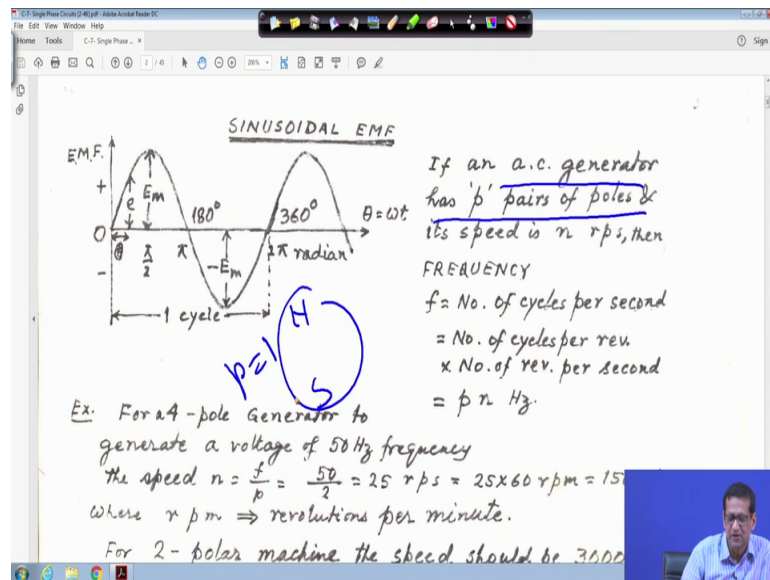 C-7- Single Phase Circuits [2-46].pdf - Adobe Acrobat Reader DC
File Edit View Window Help
Home Tools C-7- Single Phase ... × Sign
2 / 45 200%
SINUSOIDAL EMF
E.M.F.
+
e
Em
180°
360°
θ = ωt
0
θ
π/2
π
2π radian
-
-Em
1 cycle
If an a.c. generator
has 'p' pairs of poles &
its speed is n rps, then
FREQUENCY
f = No. of cycles per second
= No. of cycles per rev.
× No. of rev. per second
= p n Hz.
p=1
N
S
Ex. For a 4-pole Generator to
generate a voltage of 50 Hz frequency
the speed n = f/p = 50/2 = 25 rps = 25×60 rpm = 15
where r p m ⇒ revolutions per minute.
For 2-polar machine the speed should be 3000